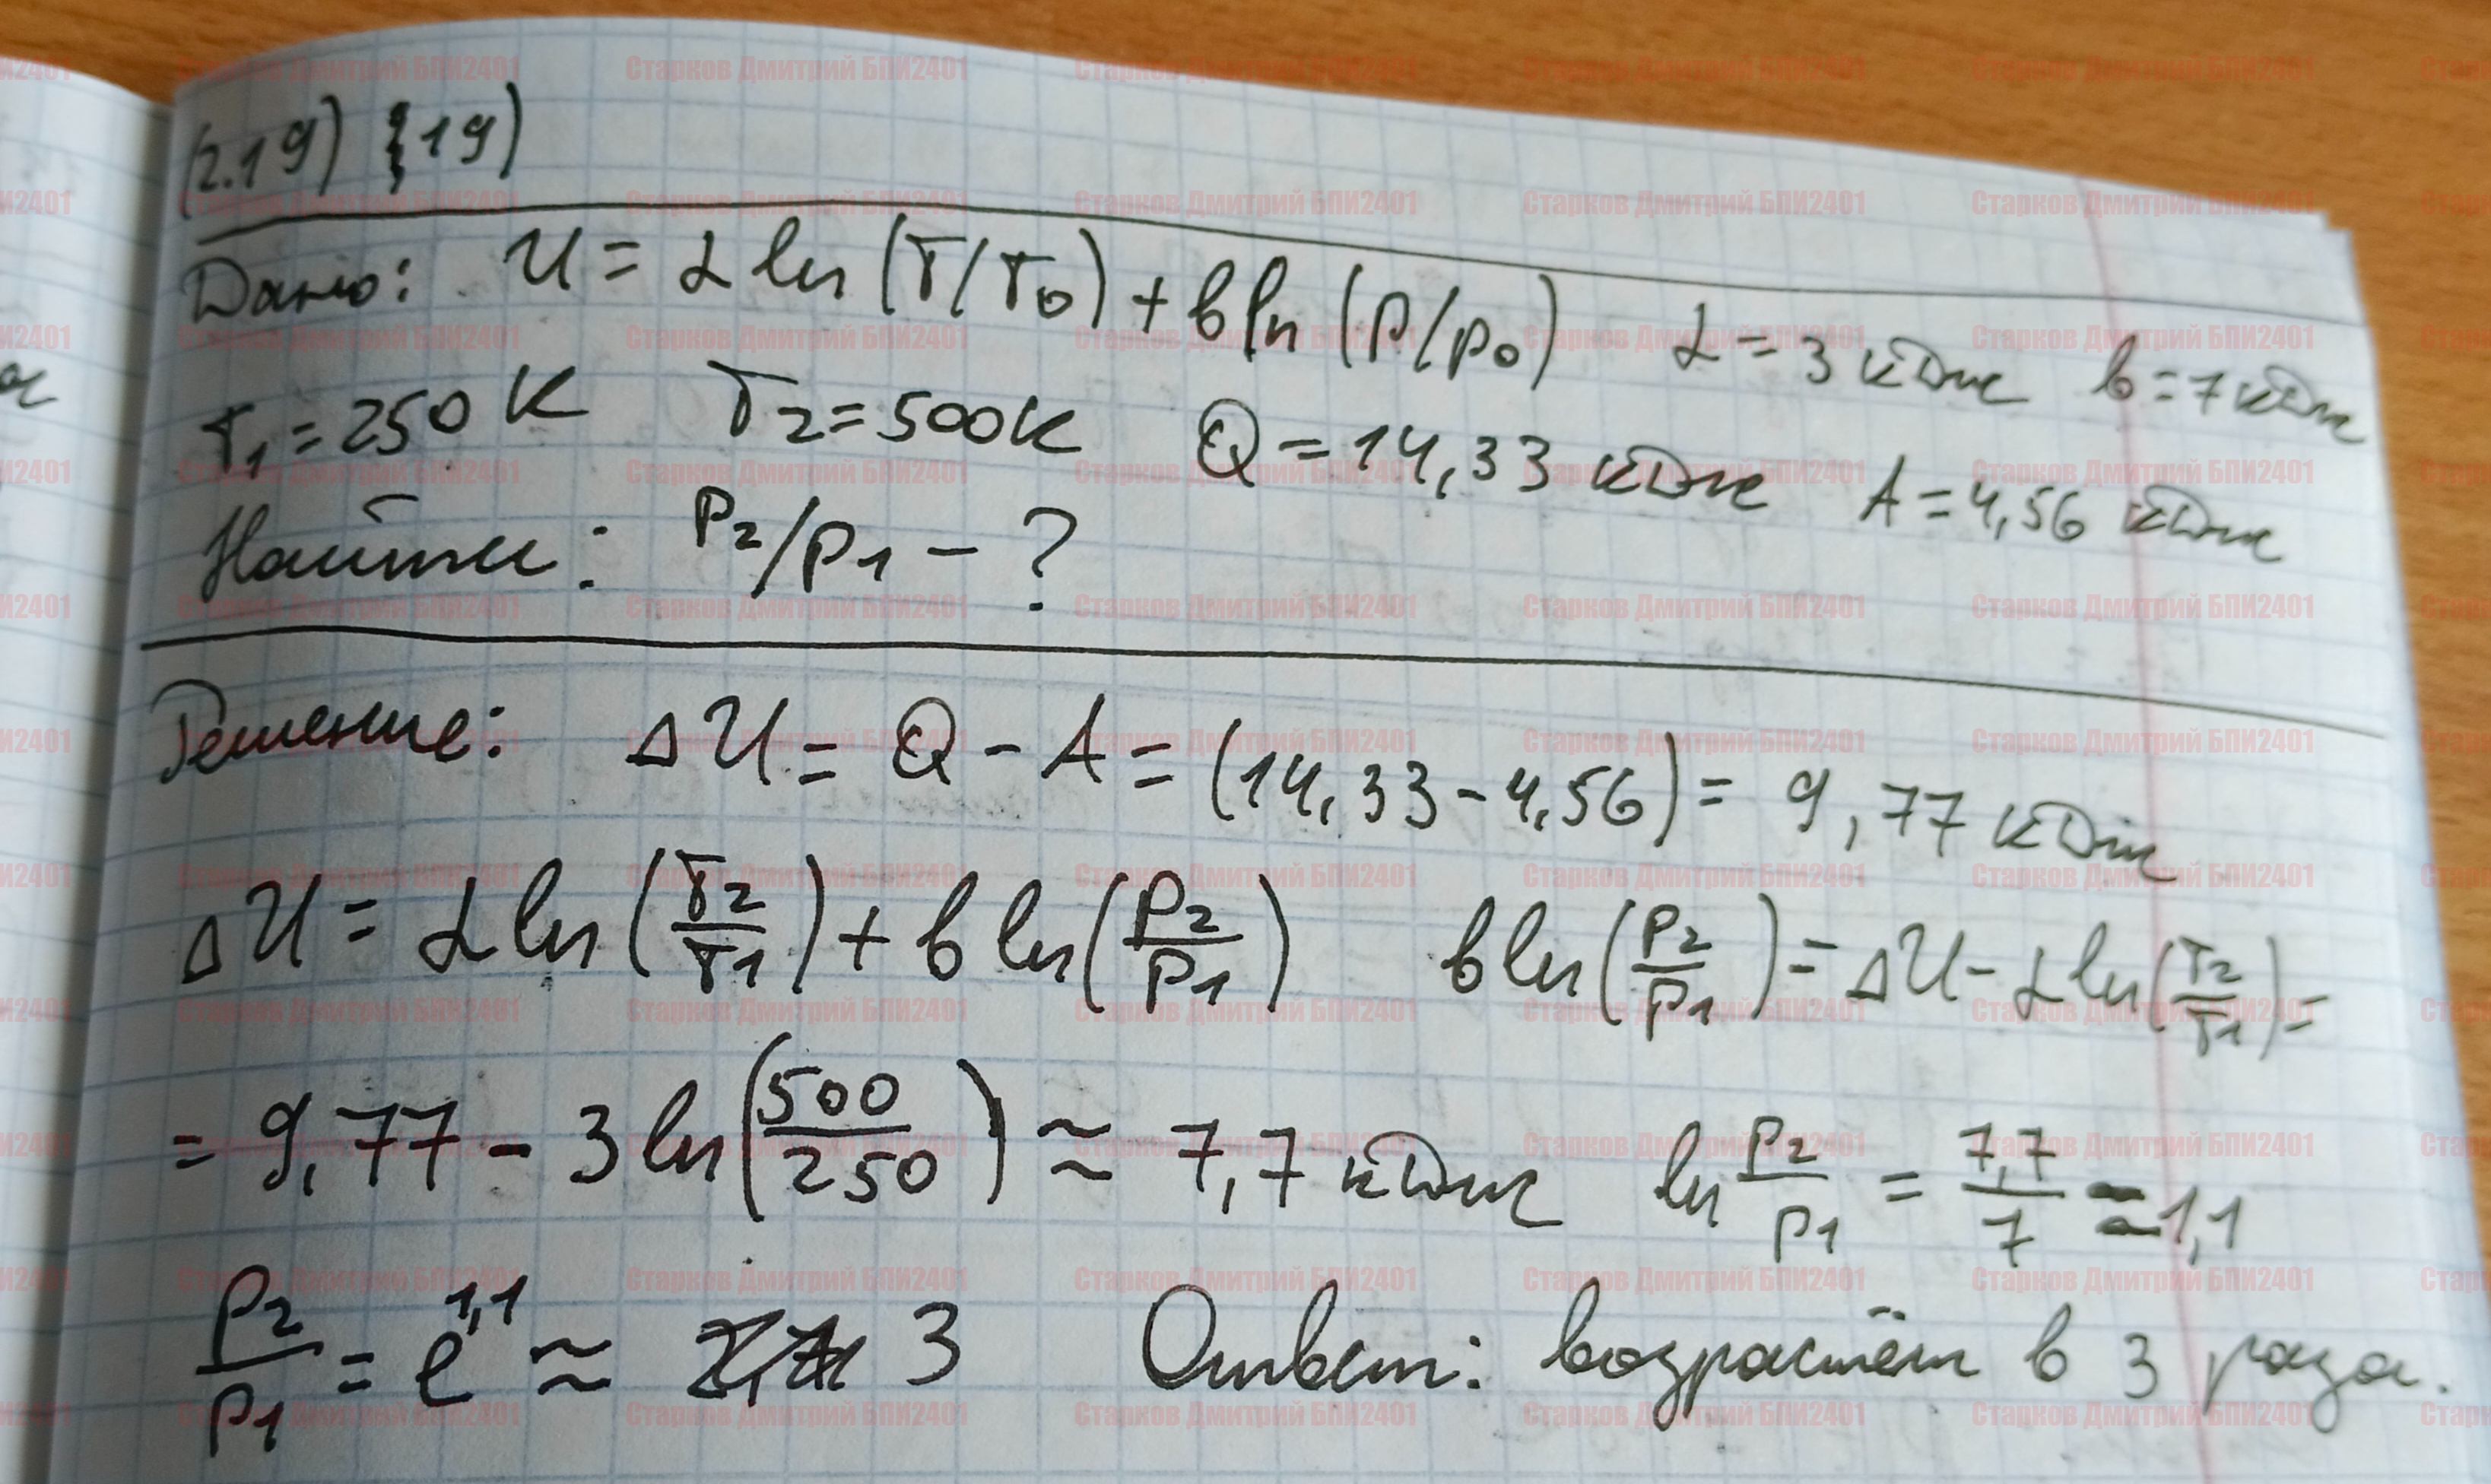 (2.19) {19)
Дано: U = α ln (T/T₀) + b ln (P/P₀) α = 3 кДж b = 7 кДж
T₁ = 250 К T₂ = 500 К Q = 14,33 кДж A = 4,56 кДж
Найти: P₂/P₁ - ?
Решение: ΔU = Q - A = (14,33 - 4,56) = 9,77 кДж
ΔU = α ln (T₂/T₁) + b ln (P₂/P₁) b ln (P₂/P₁) = ΔU - α ln (T₂/T₁) =
= 9,77 - 3 ln (500/250) ≈ 7,7 кДж ln P₂/P₁ = 7,7/7 ≈ 1,1
P₂/P₁ = e^1,1 ≈ 3 Ответ: возрастёт в 3 раза.
Старков Дмитрий БПИ2401